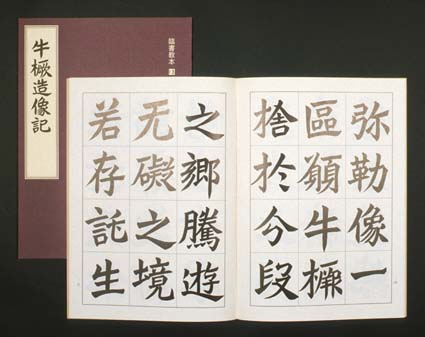 牛橛造像記
臨書教本
弥勒像一
區願牛橛
捨扵分段
之鄉騰遊
无礙之境
若存託生